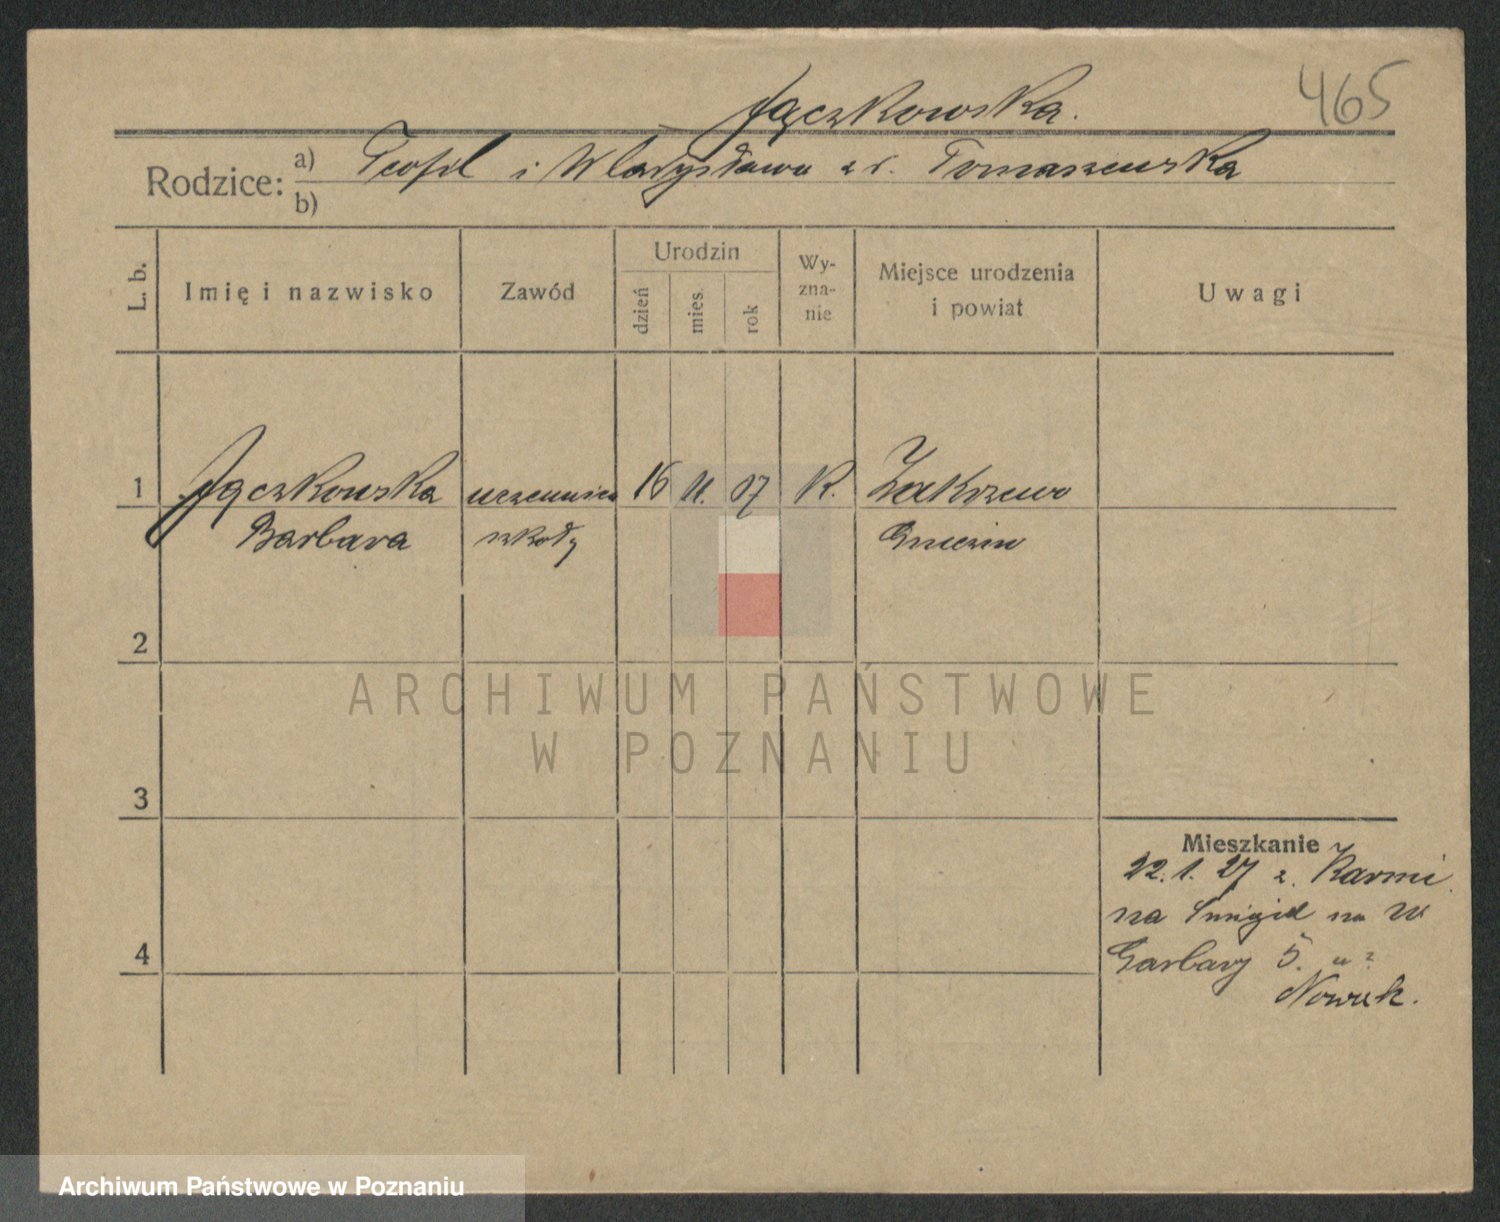 465
Jączkowska.
Rodzice: a) Teofil i Władysława z d. Tomaszewska
b)
L. b. Imię i nazwisko Zawód Urodzin dzień mies. rok Wyznanie Miejsce urodzenia i powiat Uwagi
1 Jączkowska uczennica 16 11. 07 K. Zakrzewo
Barbara szkoły Gniezno
2
ARCHIWUM PAŃSTWOWE
W POZNANIU
3
Mieszkanie
22.1.27 z. Karmi
na Śmigiel na W
4
Garbary 5. u
Nowak.
Archiwum Państwowe w Poznaniu